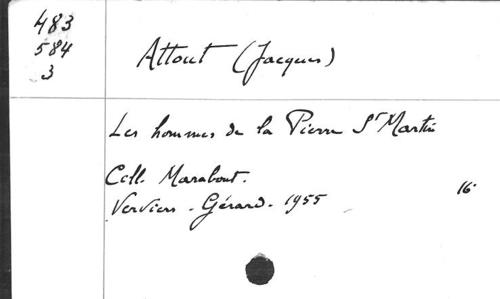 483
584
3
Attout (Jacques)
Les hommes de la Pierre St Martin
Coll. Marabout.
Verviers - Gérard - 1955
16